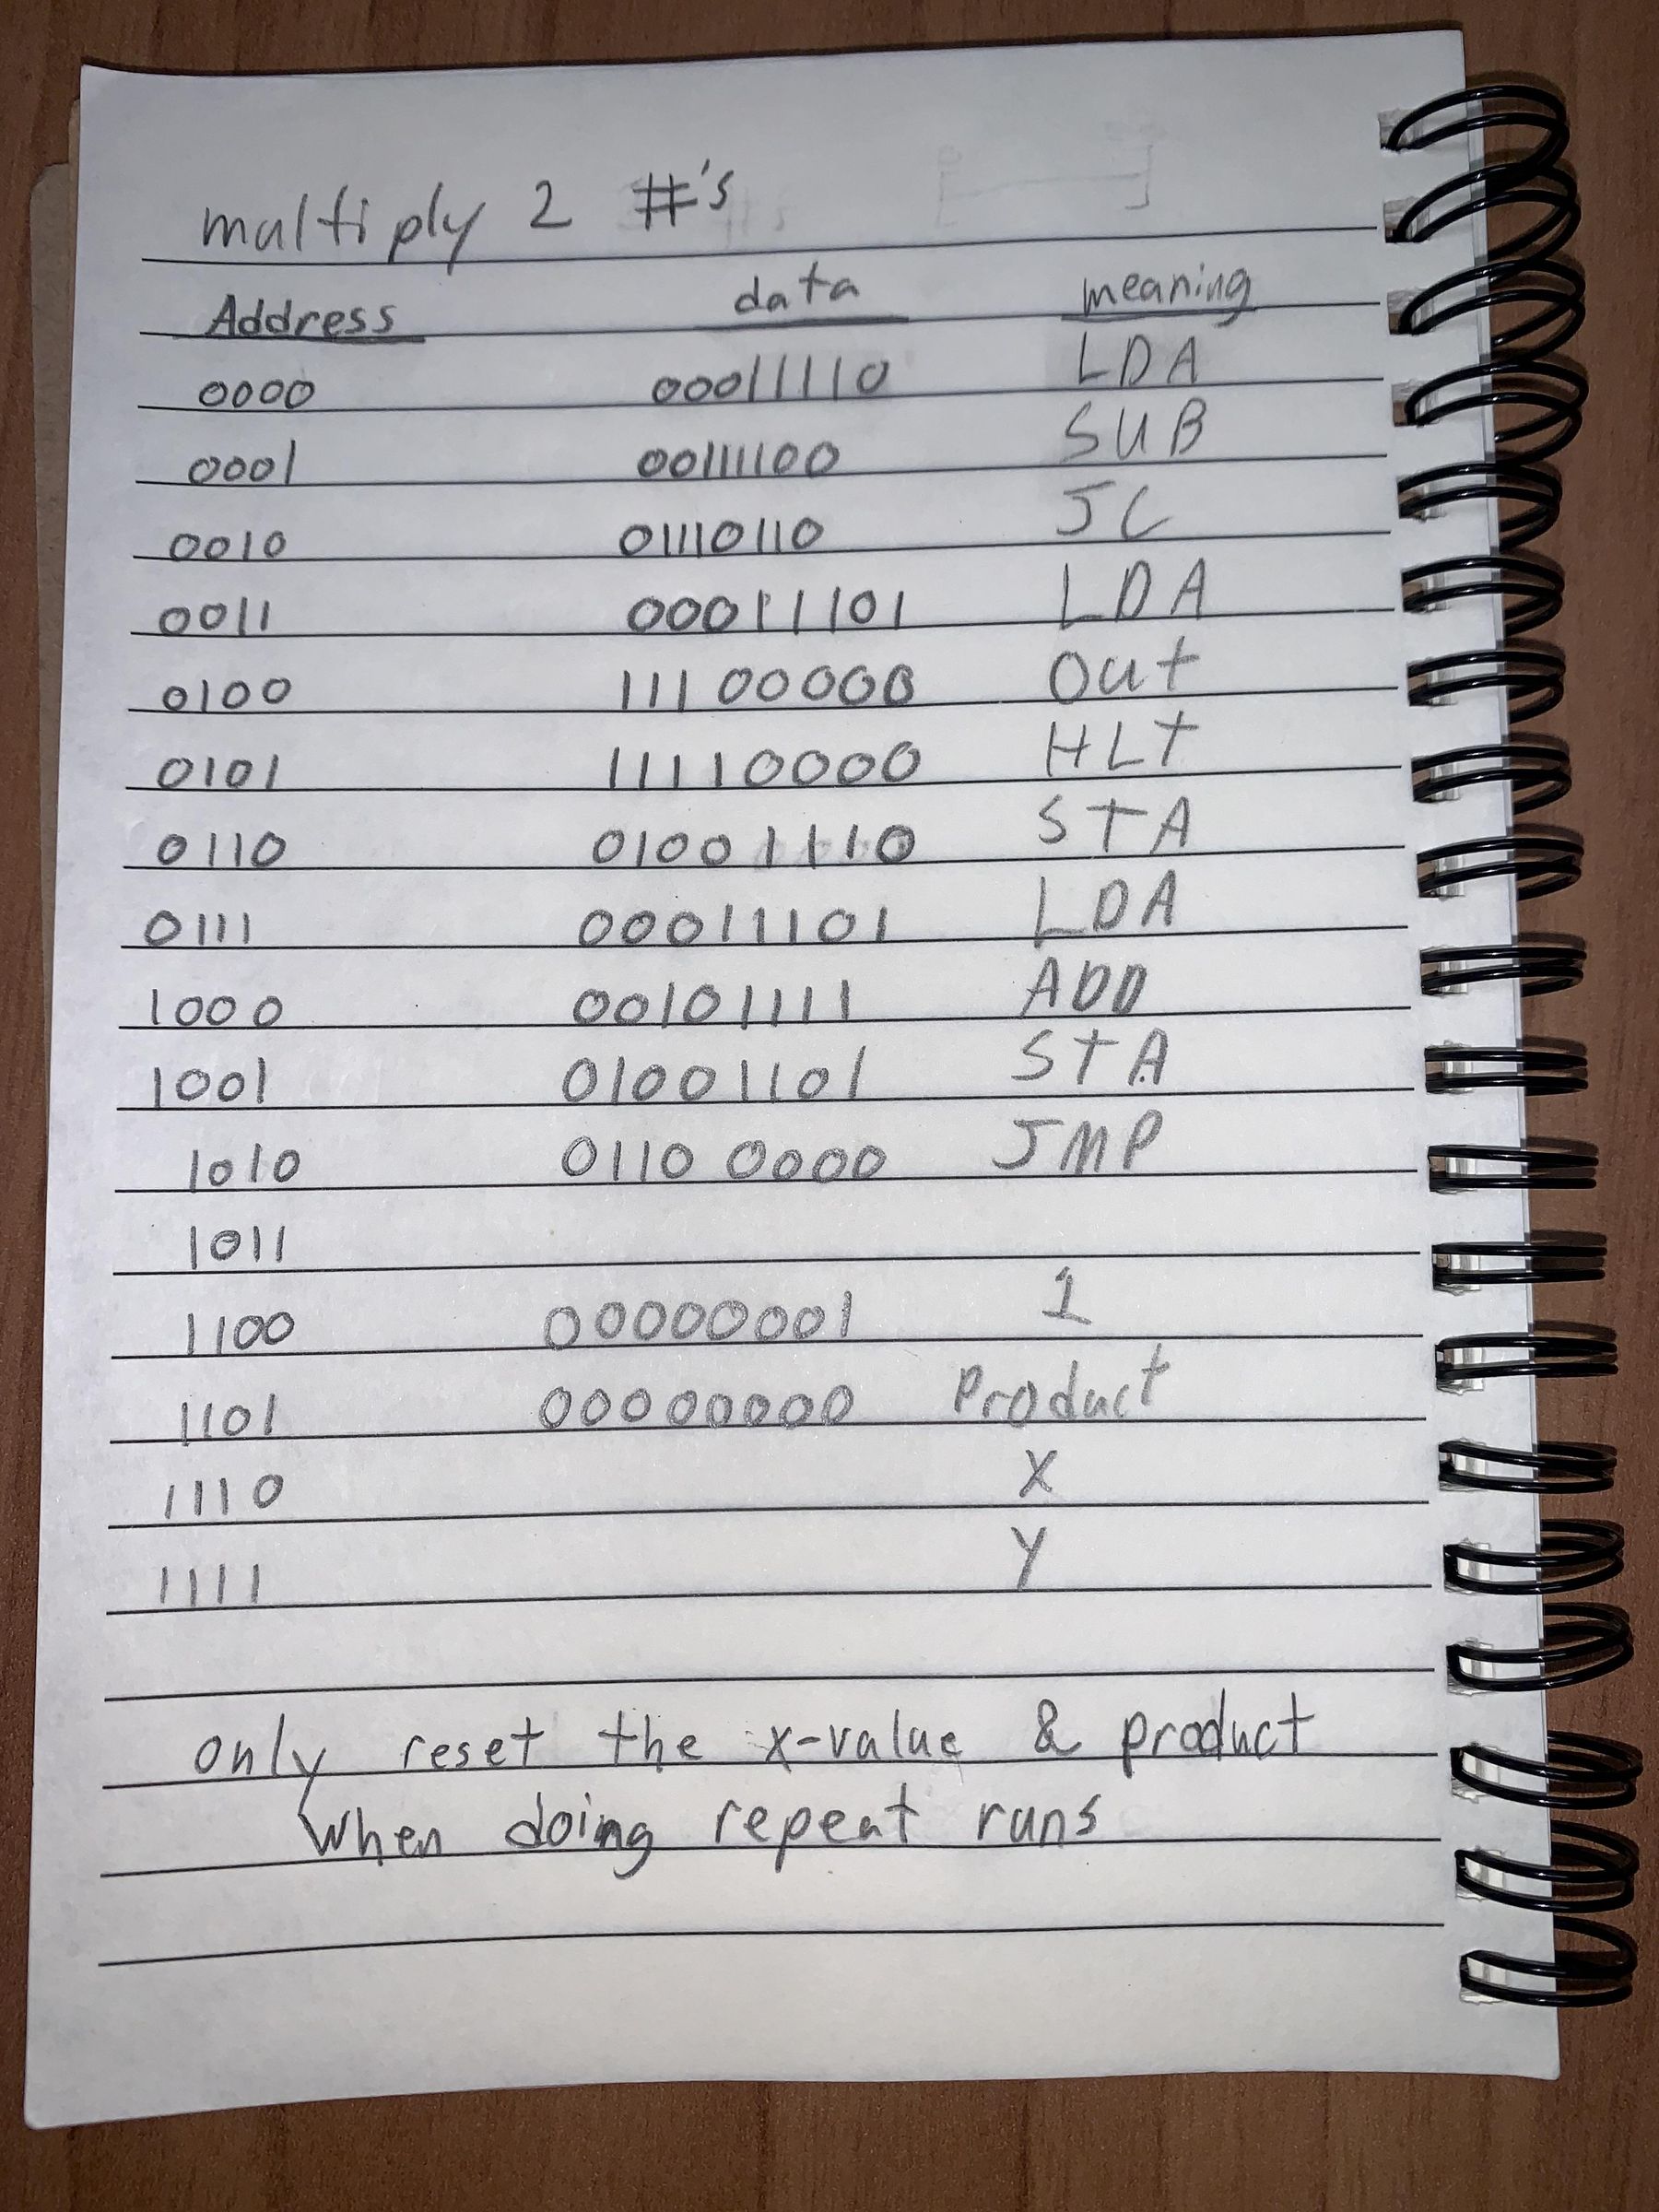 multiply 2 #'s
Address data meaning
0000 00011110 LDA
0001 00111100 SUB
0010 01110110 JC
0011 00011101 LDA
0100 11100000 Out
0101 11110000 HLT
0110 01001110 STA
0111 00011101 LDA
1000 00101111 ADD
1001 01001101 STA
1010 0110 0000 JMP
1011
1100 00000001 1
1101 00000000 Product
1110 X
1111 Y
only reset the x-value & product
when doing repeat runs